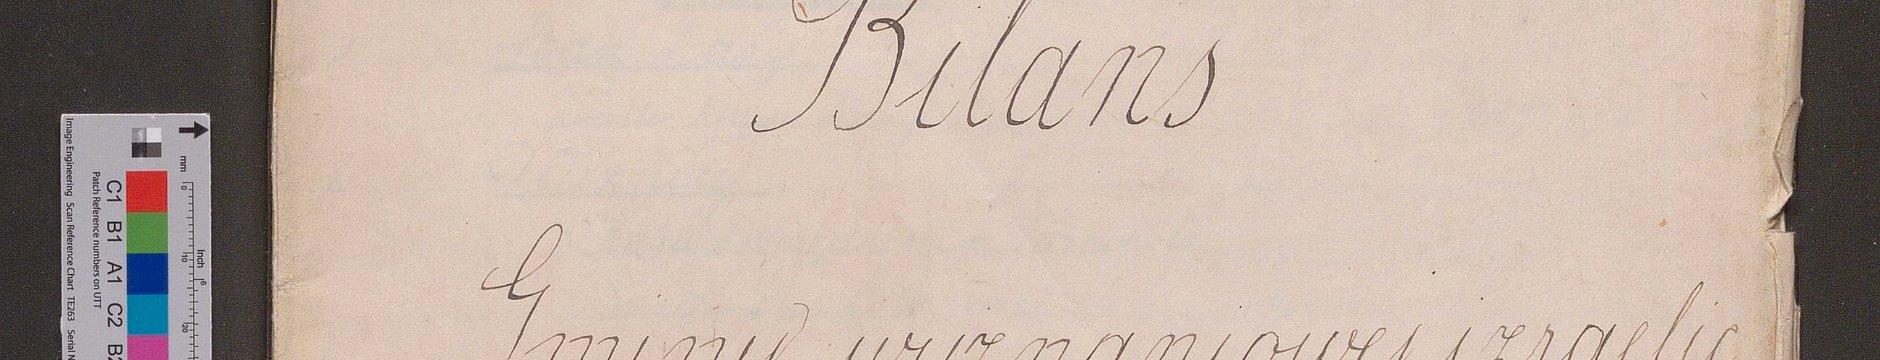 Bilans
Gminy wyznaniowej izraelic
Image Engineering Scan Reference Chart TE263 Serial N
Patch Reference numbers on UTT
C1 B1 A1 C2 B2
mm
0 10 20
Inch